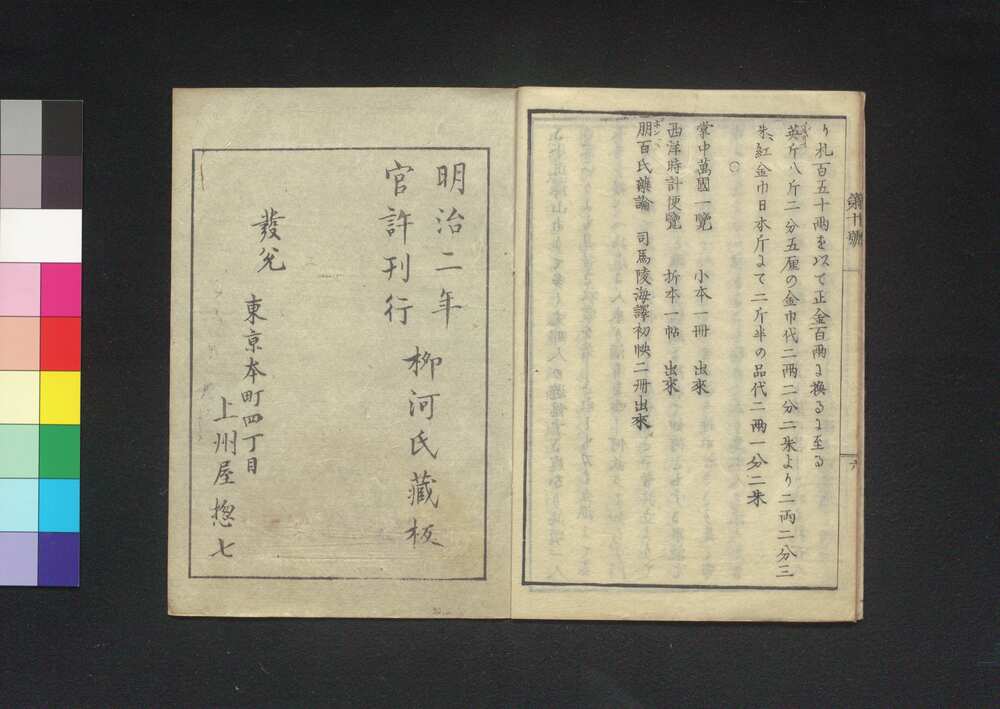 り札百五十両を以て正金百両に換るに至る
英斤八斤二分五厘の金巾代二両二分二朱より二両二分三
朱、紅金巾日本斤にて二斤半の品代二両一分二朱
○
掌中萬國一覽 小本一冊 出來
西洋時計便覽 折本一帖 出來
朋百氏藥論 司馬陵海譯初帙二冊出來
第十號
六
明治二年
官許刊行
柳河氏藏板
發兌
東京本町四丁目
上州屋惣七